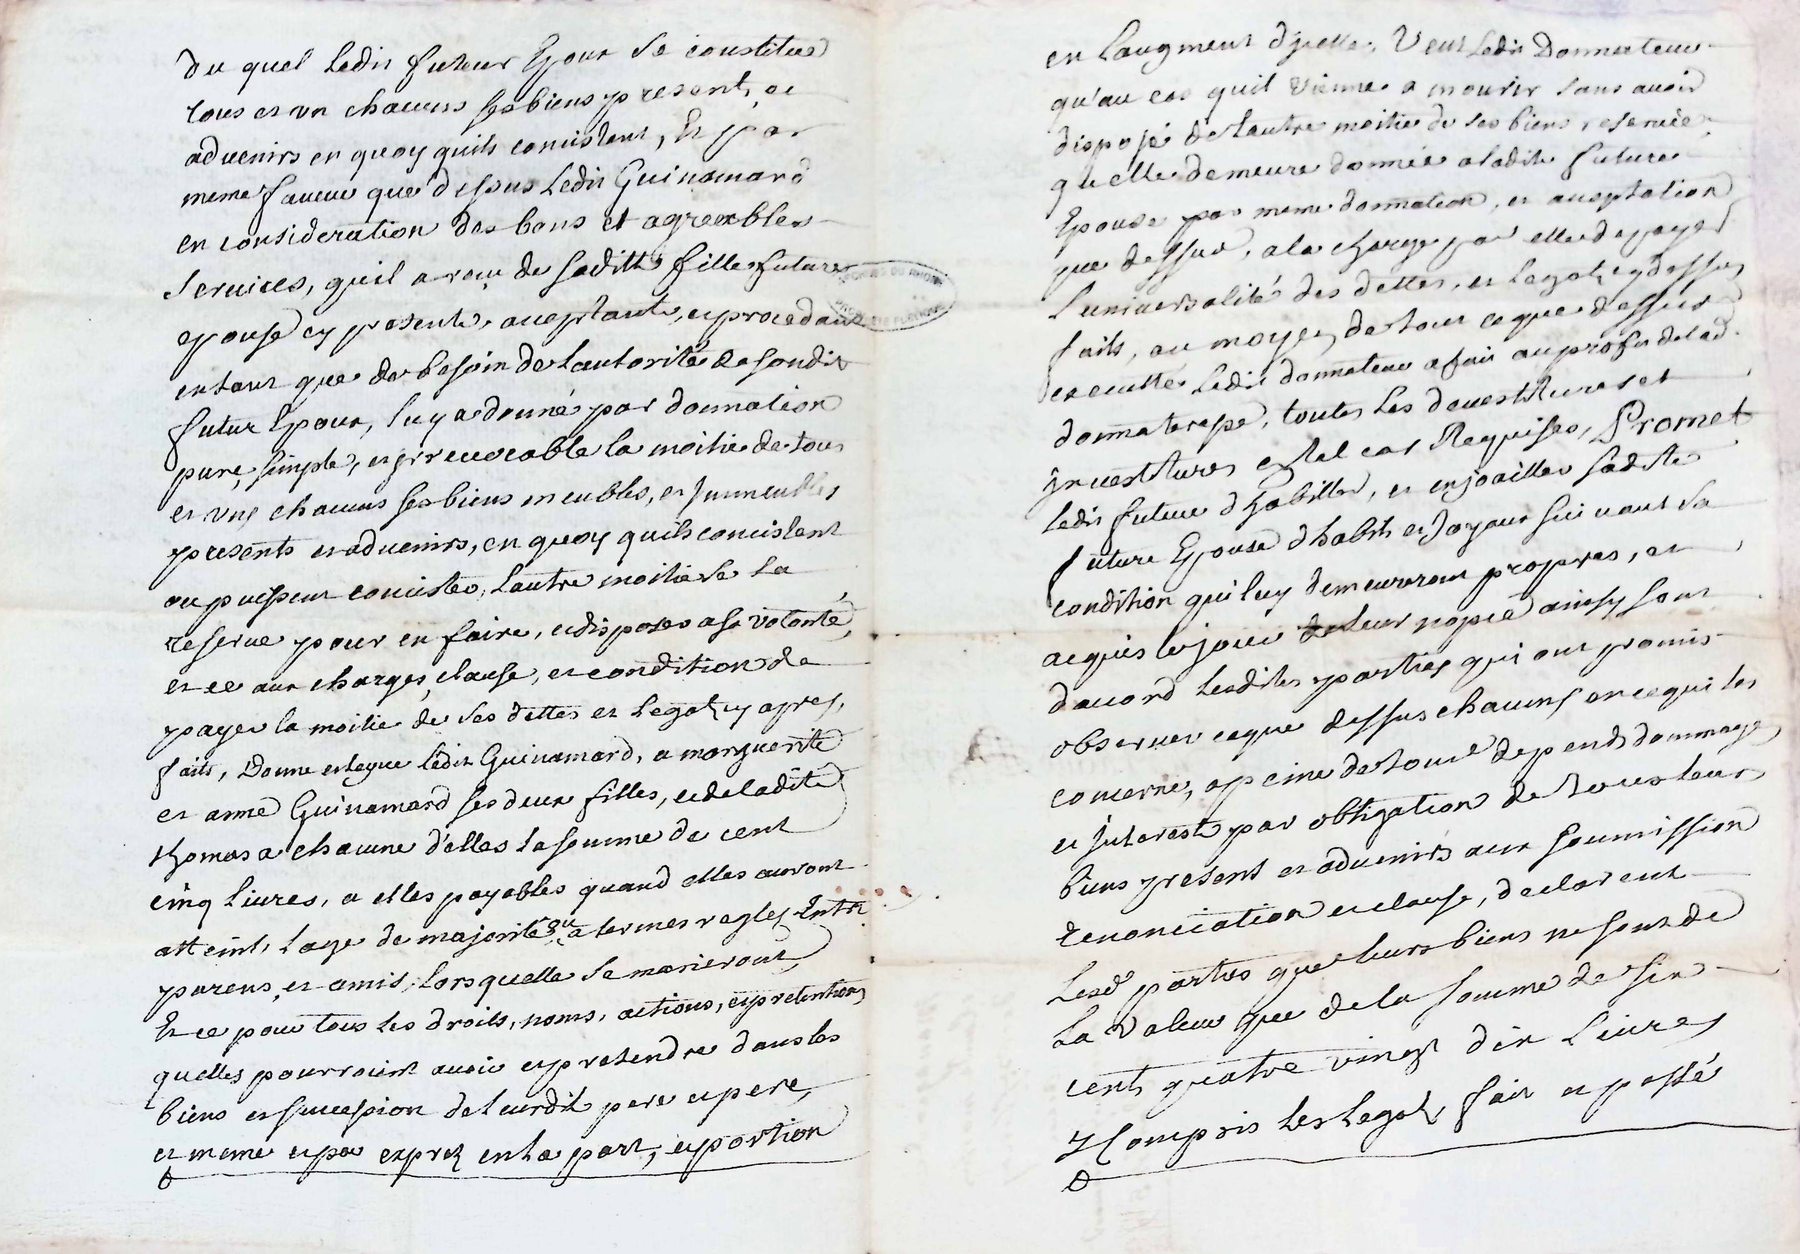 du quel Ledit futeur Epoux se constitue
tous et un chacuns ses biens present, et
advenirs en quoy quils concistent, Et par
meme faveur que dessus Ledit Guinamard
en consideration des bons et agreables
services, quil a reçu de saditte fille future
epouse cy presente, aceptante, et procedant
en tant que de besoin de L'autorité de sondit
futur Epoux, luy a donné par donnation
pure, simple, et jrrevocable la moitie de tous
et uns chacuns ses biens meubles, et Jmmeubles
presents et advenirs, en quoy quils concistent
ou puissent concister, Lautre moitie se La
reserve pour en faire, et disposer a sa volonté,
et ce aux charges, clause, et condition de
payer la moitie de ses dettes et Legats cy apres,
faits, Donne et Legue Ledit Guinamard, a marguerite
et anne Guinamard ses deux filles, et de ladite
thomas a chacune d'elles La somme de cent
cinq Livres, a elles payables quand elles auront
atteint, Lage de majorité ou a termes regles Entre
parens, et amis, Lorsquelle se marieront,
Et ce pour tous les droits, noms, actions, et pretentions
quelles pourroint avoir et pretendre dans les
biens et succession de leurdit pere et pere,
et meme et par exprez en La part, et portion
en Laugment d'jcelle, Veut Ledit Donnateur
qu'au cas quil vienne a mourir sans avoir
disposé de Lautre moitie de ses biens reservée,
quelle demeure donnée a ladite future
Epouse par meme donnation, et aceptation
que dessus, a la charge par elle de payer
L'universalité des dettes, et Legats cy dessus
faits, au moyen de tout ce que dessus
execulté Ledit donnateur a fait au profit de lad.
donnateresse, toutes Les devestitures et
jnvestitures en tel cas Requises, Promet
Ledit future d'habiller, et enjoailler sadite
future Epouse d'habits et Joyaux suivant sa
condition qui luy demeureront propres, et
acquis le jour de leur nopce ainsy sont
daccord Lesdites parties qui ont promis
observer ce que dessus chacuns en ce qui les
concerne, a peine de tous depends dommages
et Jnterests par obligation de tous leurs
biens present et advenirs aux soumission
renonciation et clause, declarent
Lesd. parties que leurs biens ne sont de
La valeur que de la somme de six
cents quatre vingt dix Livres
y Compris Les Legats, fait et passé